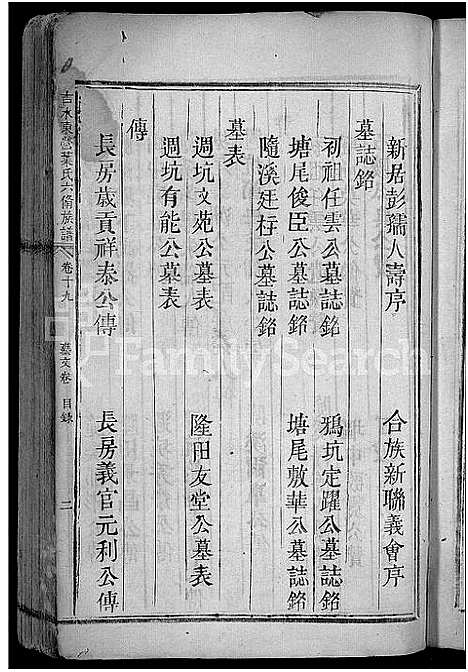 新居彭孺人壽序 合族新聯義會序
墓誌銘
初祖任雲公墓誌銘 鴉坑定躍公墓誌銘
塘尾俊臣公墓誌銘 塘尾敷華公墓誌銘
隨溪廷桴公墓誌銘
墓表
週坑文苑公墓表 隆田友堂公墓表
週坑有能公墓表
傳
長房歲貢祥泰公傳 長房義官元利公傳
吉水東營葉氏六脩族譜 卷十九 藝文卷 目錄 二
FamilySearch